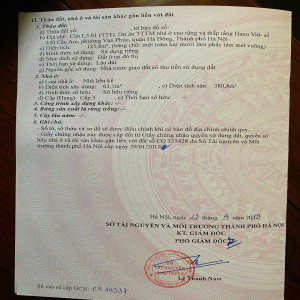 II. Thửa đất, nhà ở và tài sản khác gắn liền với đất
1. Thửa đất:
a) Thửa đất số: , tờ bản đồ số:
b) Địa chỉ: Căn L5-01 (TT6), Dự án TTTM nhà ở cao tầng và thấp tầng Hano Vid- số
430 Cầu Am, phường Vạn Phúc, quận Hà Đông, Thành phố Hà Nội
c) Diện tích: 125,8m², (bằng chữ: một trăm hai mươi lăm phẩy tám mét vuông)
d) Hình thức sử dụng: Sử dụng riêng
đ) Mục đích sử dụng: Đất ở đô thị
e) Thời hạn sử dụng: Lâu dài
g) Nguồn gốc sử dụng: Nhà nước giao đất có thu tiền sử dụng đất
2. Nhà ở:
a) Loại nhà ở: Nhà liền kề
b) Diện tích xây dựng: 63,1m² , c) Diện tích sàn: 380,8m²
d) Hình thức sở hữu: Sở hữu riêng
đ) Cấp (Hạng): Cấp 3 , e) Thời hạn sở hữu: -/-
3. Công trình xây dựng khác: -/-
4. Rừng sản xuất là rừng trồng: -/-
5. Cây lâu năm: -/-
6. Ghi chú:
- Số tờ, số thửa và sơ đồ sẽ được điều chỉnh khi có bản đồ địa chính chính quy.
- Giấy chứng nhận này được cấp đổi từ Giấy chứng nhận quyền sử dụng đất, quyền sở
hữu nhà ở và tài sản khác gắn liền với đất số CQ do Sở Tài nguyên và Môi
trường thành phố Hà Nội cấp ngày 29/01/2019
Hà Nội, ngày 12 tháng năm 2019
SỞ TÀI NGUYÊN VÀ MÔI TRƯỜNG THÀNH PHỐ HÀ NỘI
KT. GIÁM ĐỐC
PHÓ GIÁM ĐỐC
Lê Thanh Nam
Số vào sổ cấp GCN: